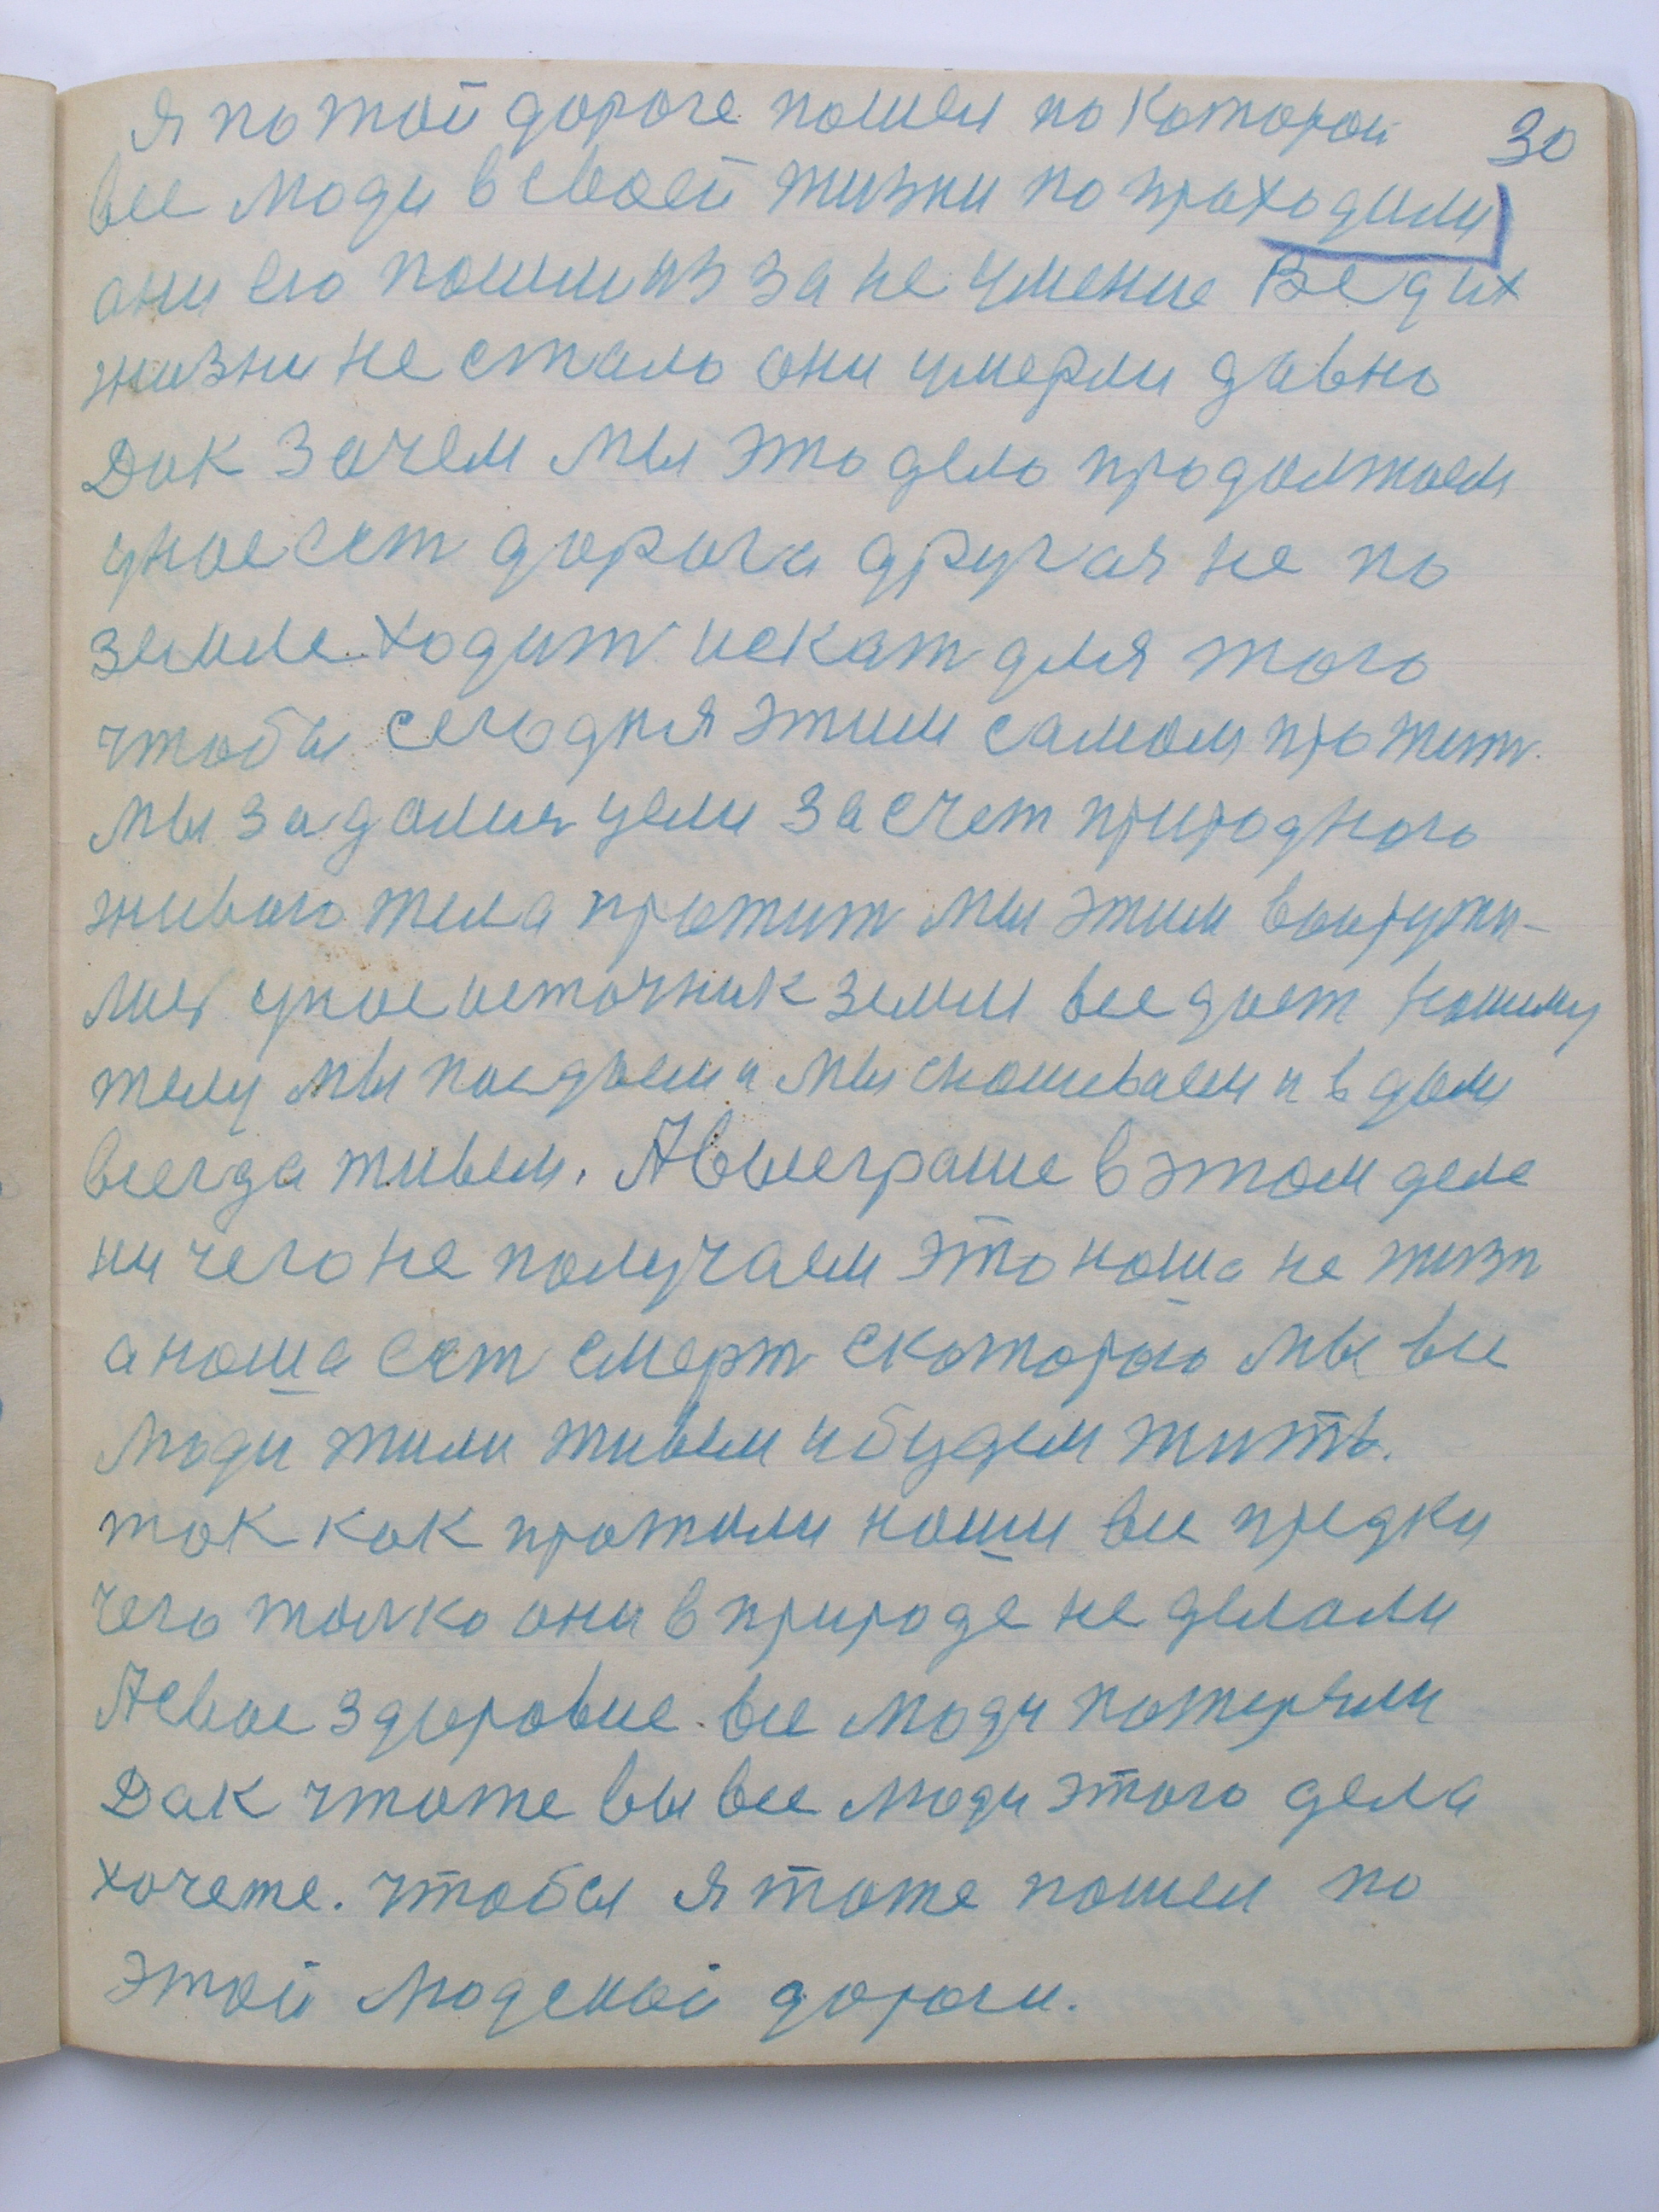 Я по той дороге пошел по которой 30
все люди в своей жизни по проходили
они его пошли из за не умение Вед их
жизни не стало они умерли давно
Дак зачем мы это дело продолжаем
унас ест дорога другая не по
земле ходит искат для того
чтобы сегодня этим самом прожит.
мы задалис цели засчет природного
живого тела прожит мы этим вооружи-
лис унас источник земли все дает нашему
телу мы поедаем и мы снашиваем и в дом
всегда живем. А выеграше в этом деле
ни чего не получаем это наша не жизн
а наша ест смерт скоторою мы все
люди жили живем и будем жить.
так как прожили наши все предки
чего толко они в природе не делали
А свое здоровие все люди потеряли
Дак чтоже вы все люди этого дела
хочете. чтобы я тоже пошел по
этой людской дороги.